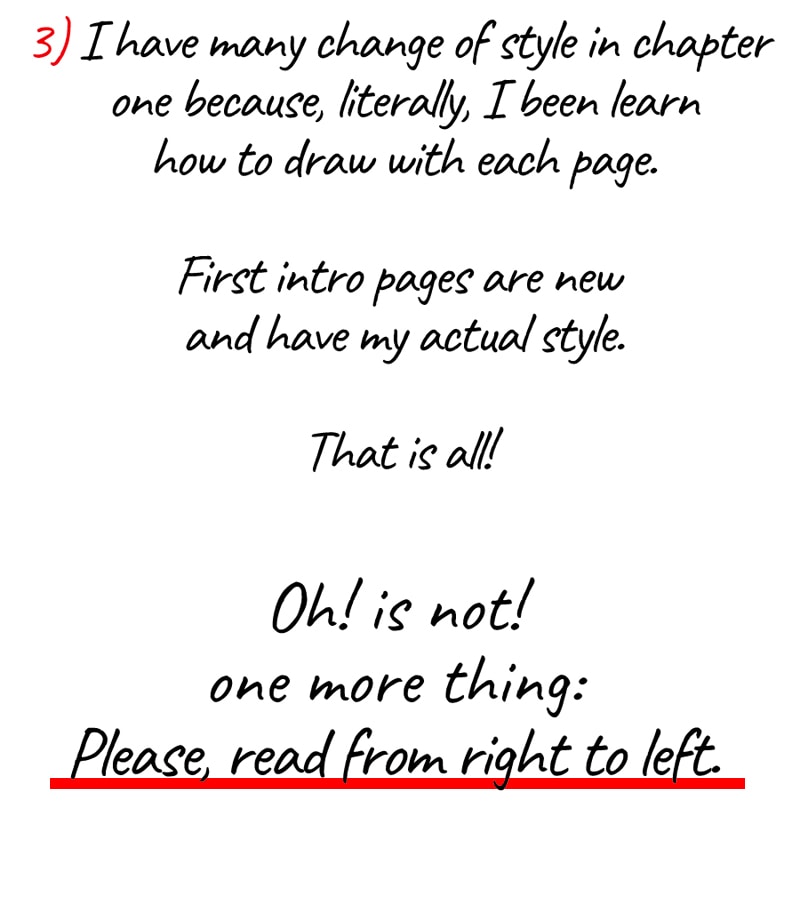 3) I have many change of style in chapter
one because, literally, I been learn
how to draw with each page.
First intro pages are new
and have my actual style.
That is all!
Oh! is not!
one more thing:
Please, read from right to left.